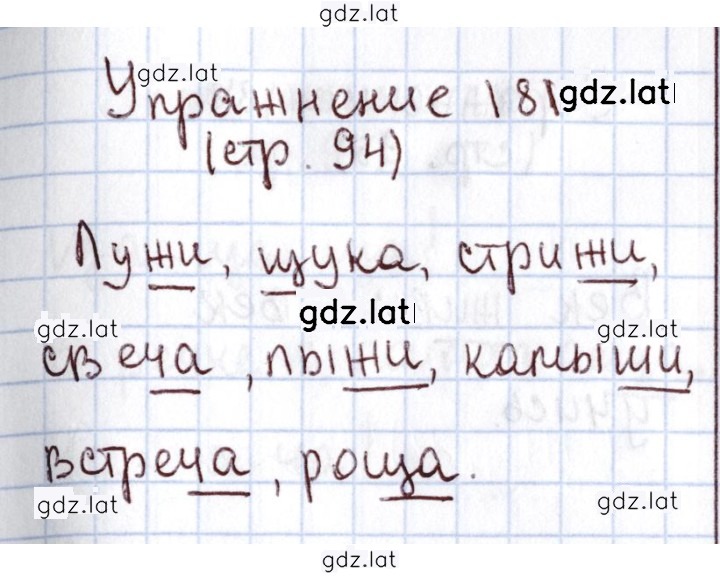 gdz.lat
Упражнение 181
gdz.lat
gdz.lat
(стр. 94)
Лужи, щука, стрижи,
gdz.lat
gdz.lat
gdz.lat
свеча, лыжи, камыши,
встреча, роща.
gdz.lat
gdz.lat
gdz.lat